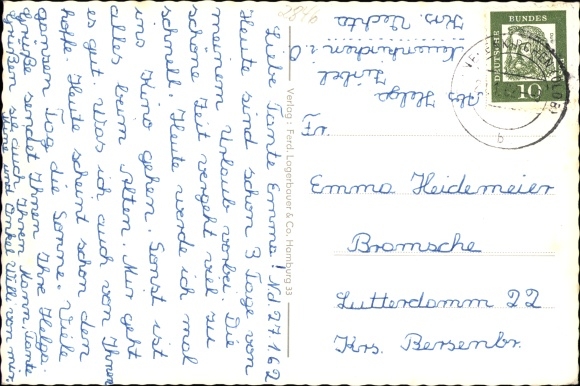 Liebe Tante Emma! N.d 27.7.62
Heute sind schon 3 Tage von
meinem Urlaub vorbei. Die
schöne Zeit vergeht viel zu
schnell. Heute werde ich mal
ins Kino gehen. Sonst ist
alles beim Alten. Mir geht
es gut. Was ich auch von Ihnen
hoffe. Heute scheint schon den
ganzen Tag die Sonne. Viele
Grüße sendet Ihnen Ihre Helga.
Grüßen sie auch Ihren Mann, Tante
und Onkel Willi von mir
Verlag: Ferd. Lagerbauer & Co. Hamburg 33
Abs Helga
Neuenkirchen i. O.
Krs. Vechta
DEUTSCHE BUNDES
10
b
Fr.
Emma Heidemeier
Bramsche
Lutterdamm 22
Krs. Bersenbr.